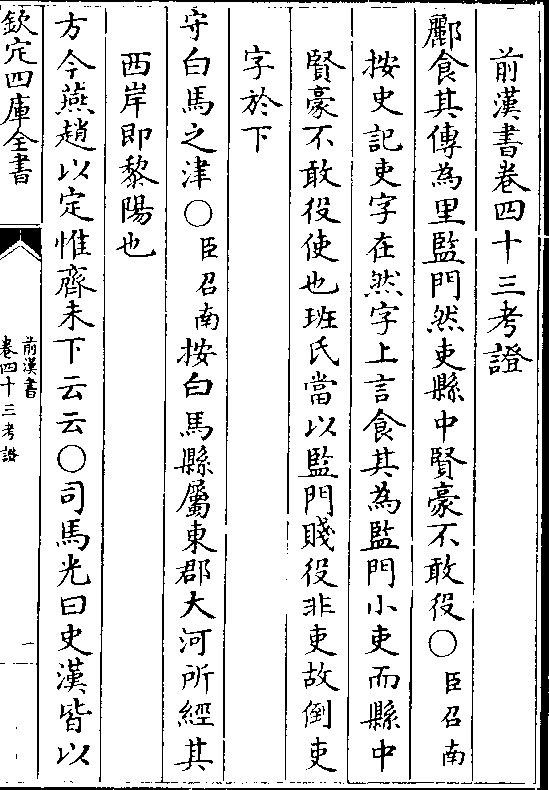 前漢書卷四十三考證
酈食其傳為里監門然吏縣中賢豪不敢役〇臣召南
按史記吏字在然字上言食其為監門小吏而縣中
賢豪不敢役使也班氏當以監門賤役非吏故倒吏
字於下
守白馬之津〇臣召南按白馬縣屬東郡大河所經其
西岸即黎陽也
方今燕趙以定惟齊未下云云〇司馬光曰史漢皆以
欽定四庫全書
前漢書
卷四十三考證
一